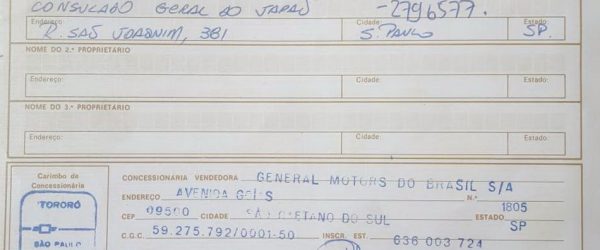 CONSULADO GERAL DO JAPAÕ -2796577.
Endereço: Cidade: Estado:
R. SAÕ JOAQUIM, 381 S. PAULO SP.
NOME DO 2.º PROPRIETÁRIO
Endereço: Cidade: Estado:
NOME DO 3.º PROPRIETÁRIO
Endereço: Cidade Estado:
Carimbo de
Concessionária
TORORÓ
SÃO PAULO
CONCESSIONÁRIA VENDEDORA GENERAL MOTORS DO BRASIL S/A
ENDEREÇO AVENIDA GOIÁS N.º 1805
CEP 09500 CIDADE SÃO CAETANO DO SUL ESTADO SP
C.G.C. 59.275.792/0001-50 INSCR. EST. 636 003 724